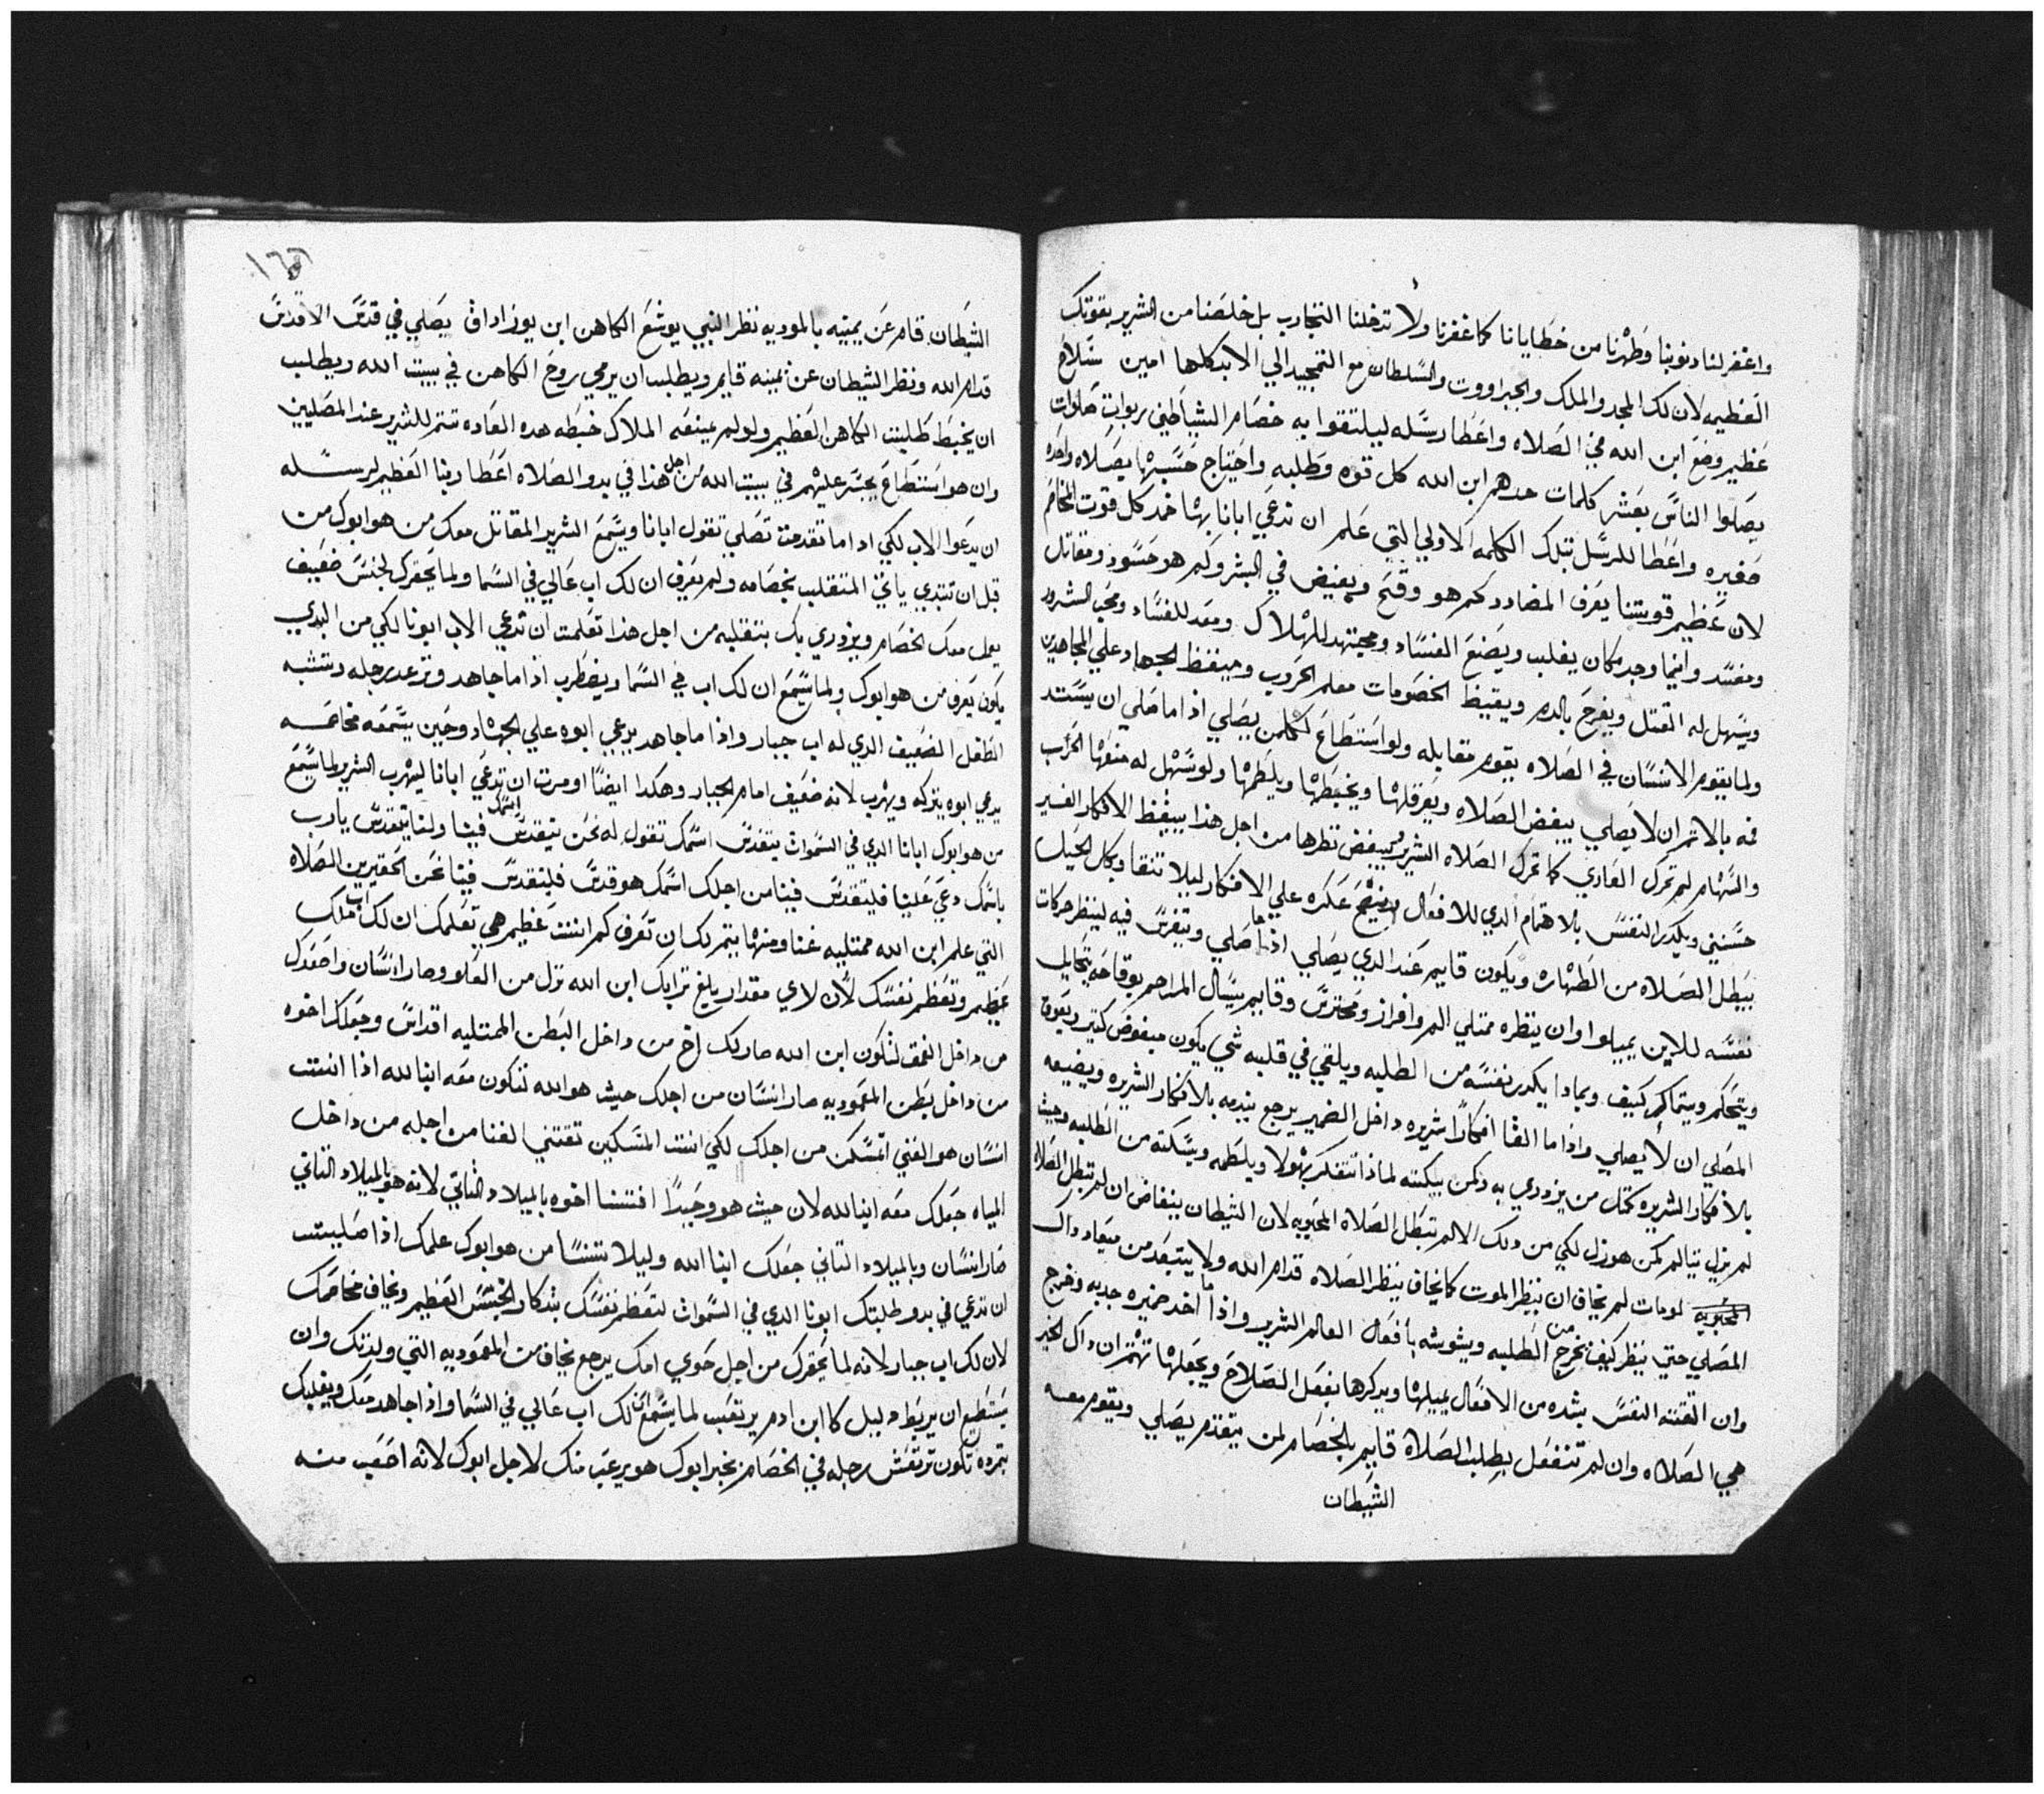 واغفر لنا دنوبنا وطهرنا من خطايانا كما غفرنا ولا تدخلنا التجارب بل خلصنا من الشرير بقوتك
العظيمه لان لك المجد والملك والجبرووت والسلطان مع التمجيد الي الابد كلها امين سلاح
عظيم وضع ابن الله في الصلاه واعطا رسله ليلتقوا به خصام الشياطين ربوات صلوات
يصلوا الناس بعشر كلمات حدهم ابن الله كل قوه وطلبه واحتياج حسبها بصلاه واحده
صغيره واعطا للرسل بتلك الكلمه الاولي التي علم ان ندعي ابانا بها خمد كل قوت المخاصم
لان عظيم قوتنا يعرف المضادد كم هو وقح وبغيض في البشر وكم هو حسود ومقاتل
ومفسد واينما وجد مكان يغلب ويصنع الفساد ومجتهد للهلاك ومعد للفساد ومحب الشرور
ويسهل له القتل ويفرح بالدم ويقيظ الخصومات معلم الحروب ومبغظ الجهاد علي المجاهدين
ولما يقوم الانسان في الصلاه يقوم مقابله ولو استطاع لكلمن يصلي اذا ما صلي ان يسند
فمه بالاتم ان لا يصلي يبغض الصلاه ويعرقلها ويخبطها ويلطمها ولو سهل له منعها الحرب
والسهام لم تحرك الغادي كما تحرك الصلاه الشرير يبغض نظرها من اجل هذا يبغظ الافكار الغير
حسنني ويكدر النفس بالاهتمام الدي للافعال عكره علي الافكار ليلا تنقا وبكل الحيل
يبطل الصلاه من الطهارت ويكون قايم عند الدي يصلي اذا ما صلي ويتفرس فيه لينظر حركات
نفسه للاين يميلوا وان ينظره ممتلي الم وافراز ومحترس وقايم يسال المراحم بوقاحه يتحايل
ويتحكم ويتماكر كيف وبمادا يكدر نفسه من الطلبه ويلقي في قلبه شي يكون مبغوض كتير ويعوق
المصلي ان لا يصلي واذا ما القا افكارا شريره داخل الضمير يرجع يندمه بالافكار الشريره ويضيعه
بالافكار الشريره كمتل من يزودري به وكمن يبكته لماذا تتفكر بهولا ويلطمه ويسكته من الطلبه وحيث
لم يزل يتالم كمن هو زل لكي من دلك الالم تبطل الصلاه المحبوبه لان الشيطان ينغاض ان لم تبطل الصلاه
المحبوبه لو مات لم يخاف ان ينظر الموت كما يخاف ينظر الصلاه قدام الله ولا يبتعد من ميعاد داك
المصلي حتي ينظر كيف يخرج من الطلبه ويشوشه بافعال العالم الشرير واذا ما اخد ضميره جدبه وخرج
وان اقتنته النفس بشده من الافعال يميلها ويدكرها بفعل الصلاح ويجعلها تهتم ان داك الخير
هي الصلاه وان لم تنفعل يطلب الصلاه قايم بالخصام لمن يتقدم يصلي ويقوم معه
الشيطان
الشيطان قام عن يمينه بالموديه نظر النبي يوشع الكاهن ابن يوزاداق يصلي في قدس الاقداس
قدام الله ونظر الشيطان عن يمينه قايم ويطلب ان يرمي روح الكاهن في بيت الله ويطلب
ان يخبط طلبت الكاهن العظيم ولو لم يمنعه الملاك خبطه هده العاده تتم للشرير عند المصليين
وان هو استطاع يجسر عليهم في بيت الله من اجل هذا في بدو الصلاه اعطا ربنا العظيم لرسله
ان يدعوا الاب لكي اداما تقدمت تصلي تقول ابانا ويسمع الشرير المقاتل معك من هو ابوك من
قبل ان تبتدي ياتي المتقلب بخصامه ولم يعرف ان لك اب عالي في السما ولما يحقرك لجنس ضعيف
يعمل معك الخصام ويزودري بك بتقلبه من اجل هذا تعلمت ان تدعي الاب ابونا لكي من البدي
يكون يعرف من هو ابوك ولما يسمع ان لك اب في السما ويضطرب اذا ما جاهد وترعد رجله وتشبه
الطفل الضعيف الدي له اب جبار واذا ما جاهد يدعي ابوه علي الجهاد وحين يسمعه مخاصمه
يدعي ابوه يتركه ويهرب لانه ضعيف امام الجبار وهكدا ايضا اومرت ان تدعي ابانا ليهرب الشرير لما يسمع
من هو ابوك ابانا الدي في السموات يتقدس اسمك تقول له نحن يتقدس اسمك فينا ولنا يتقدس يارب
باسمك دعي علينا فليتقدس فينا من اجلك اسمك هو قدس فليتقدس فينا نحن الحقيرين الصلاه
التي علم ابن الله ممتليه غنا ومنها يتحريك ان تعرف كم انت عظيم هي تعلمك ان لك اب ملك
عظيم وتعظم نفسك لان لاي مقدار بلغ ترابك ابن الله نزل من العلو وصار انسان واصعدك
من داخل العمق لتكون ابن الله صار لك اخ من داخل البطن الممتليه اقداس وجعلك اخوه
من داخل بطن المعموديه صار انسان من اجلك حيث هو الله لتكون معه ابنا لله اذا انتت
انسان هو الغني اتمسكن من اجلك لكي انت المسكين تقتني الغنا من اجله من داخل
المياه جعلك معه ابنا لله لان حيث هو وحيدا اقتنا اخوه بالميلاد التاني لانه هو بالميلاد التاني
صار انسان وبالميلاد التاني جعلك ابنا الله وليلا تنسا من هو ابوك علمك اذا صليت
ان تدعي في بدو طلبتك ابونا الدي في السموات لتعظم نفسك بتدكار الجنس العظيم ويخاف مخاصمك
لان لك اب جبار لانه لما يحقرك من اجل حوي امك يرجع يخاف من المعموديه التي ولدتك وان
يستطيع ان يربط دليل كما ابن ادم يرتعب لما يسمع ان لك اب عالي في السما واذا جاهد معك ويغلبك
بتمرده تكون ترتعش رجله في الخصام بخبر ابوك هو يرعب منك لاجل ابوك لانه اصعب منه